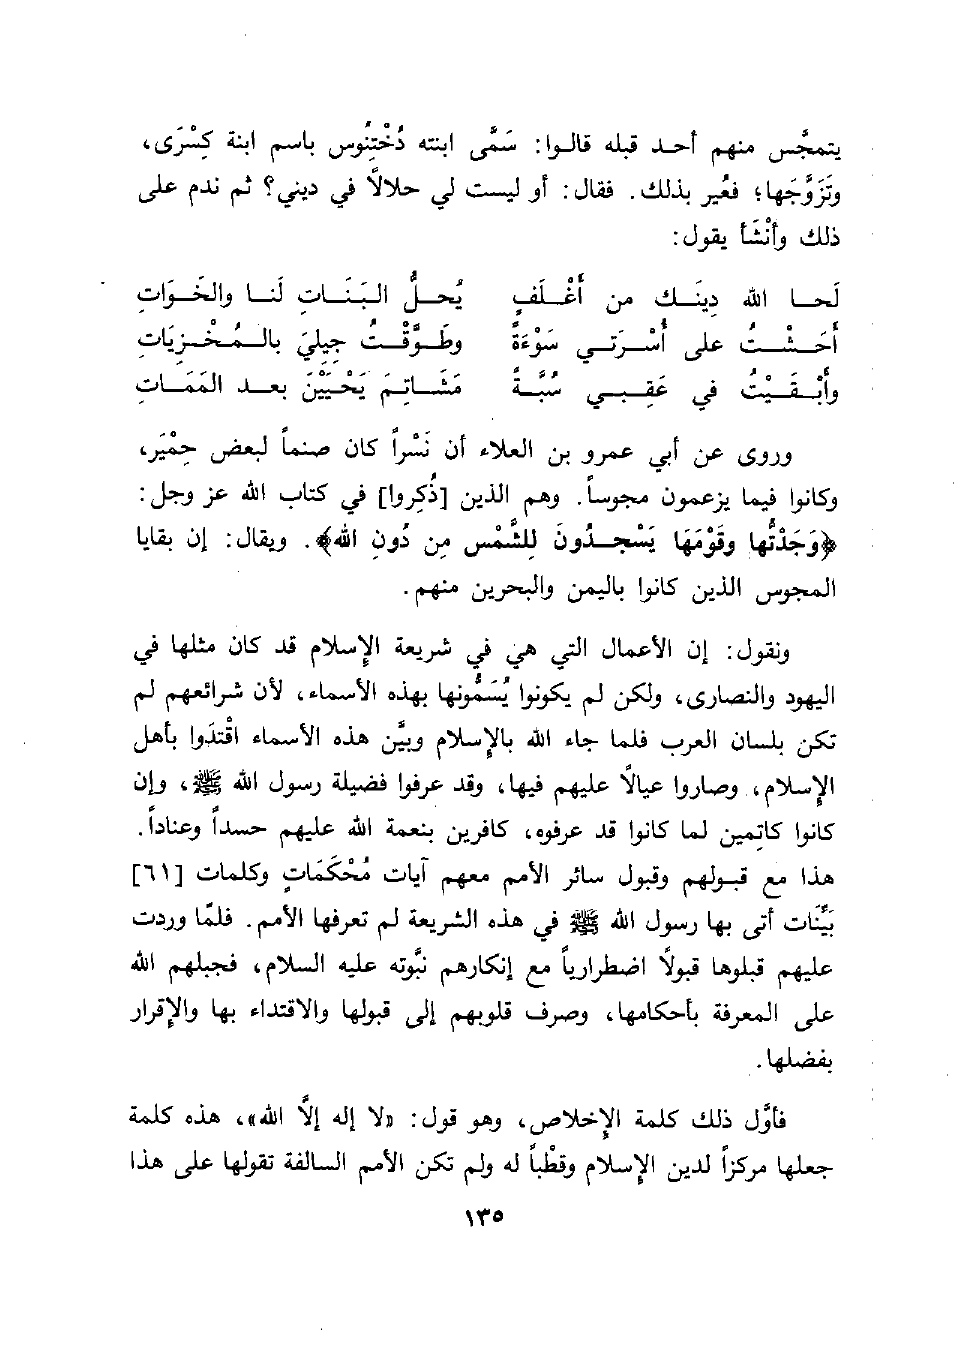 يتمجَّس منهم أحد قبله قالوا: سَمَّى ابنته دُخْتِنُوس باسم ابنة كِسْرَى،
وتَزَوَّجَها؛ فعُير بذلك. فقال: أو ليست لي حلالاً في ديني؟ ثم ندم على
ذلك وأنْشَأ يقول:
لَحا الله دِينَك من أغْلَفٍ يُحلُّ البَنَاتِ لَنا والخَوَاتِ
أحَشْتُ على أسْرَتي سَوْءَةً وطَوَّقْتُ جِيلِيَ بالمُخْزِيَاتِ
وأبْقَيْتُ في عَقِبي سُبَّةً مَشَاتِمَ يَحْيَيْنَ بعد المَمَاتِ
وروى عن أبي عمرو بن العلاء أن نَسْراً كان صنماً لبعض حِمْيَر،
وكانوا فيما يزعمون مجوساً. وهم الذين [ذُكِروا] في كتاب الله عز وجل:
﴿وَجَدْتُها وقَوْمَهَا يَسْجُدُونَ لِلشَّمْسِ مِن دُونِ الله﴾. ويقال: إن بقايا
المجوس الذين كانوا باليمن والبحرين منهم.
ونقول: إن الأعمال التي هي في شريعة الإسلام قد كان مثلها في
اليهود والنصارى، ولكن لم يكونوا يُسَمُّونها بهذه الأسماء، لأن شرائعهم لم
تكن بلسان العرب فلما جاء الله بالإسلام وبيَّن هذه الأسماء اقْتَدَوا بأهل
الإسلام، وصاروا عيالاً عليهم فيها، وقد عرفوا فضيلة رسول الله ﷺ، وإن
كانوا كاتمين لما كانوا قد عرفوه، كافرين بنعمة الله عليهم حسداً وعناداً.
هذا مع قبولهم وقبول سائر الأمم معهم آيات مُحْكَمَاتٍ وكلمات [٦١]
بيِّنات أتى بها رسول الله ﷺ في هذه الشريعة لم تعرفها الأمم. فلمّا وردت
عليهم قبلوها قبولاً اضطرارياً مع إنكارهم نبُوته عليه السلام، فجبلهم الله
على المعرفة بأحكامها، وصرف قلوبهم إلى قبولها والاقتداء بها والإقرار
بفضلها.
فأوَّل ذلك كلمة الإخلاص، وهو قول: «لا إله إلَّا الله»، هذه كلمة
جعلها مركزاً لدين الإسلام وقطْباً له ولم تكن الأمم السالفة تقولها على هذا
١٣٥